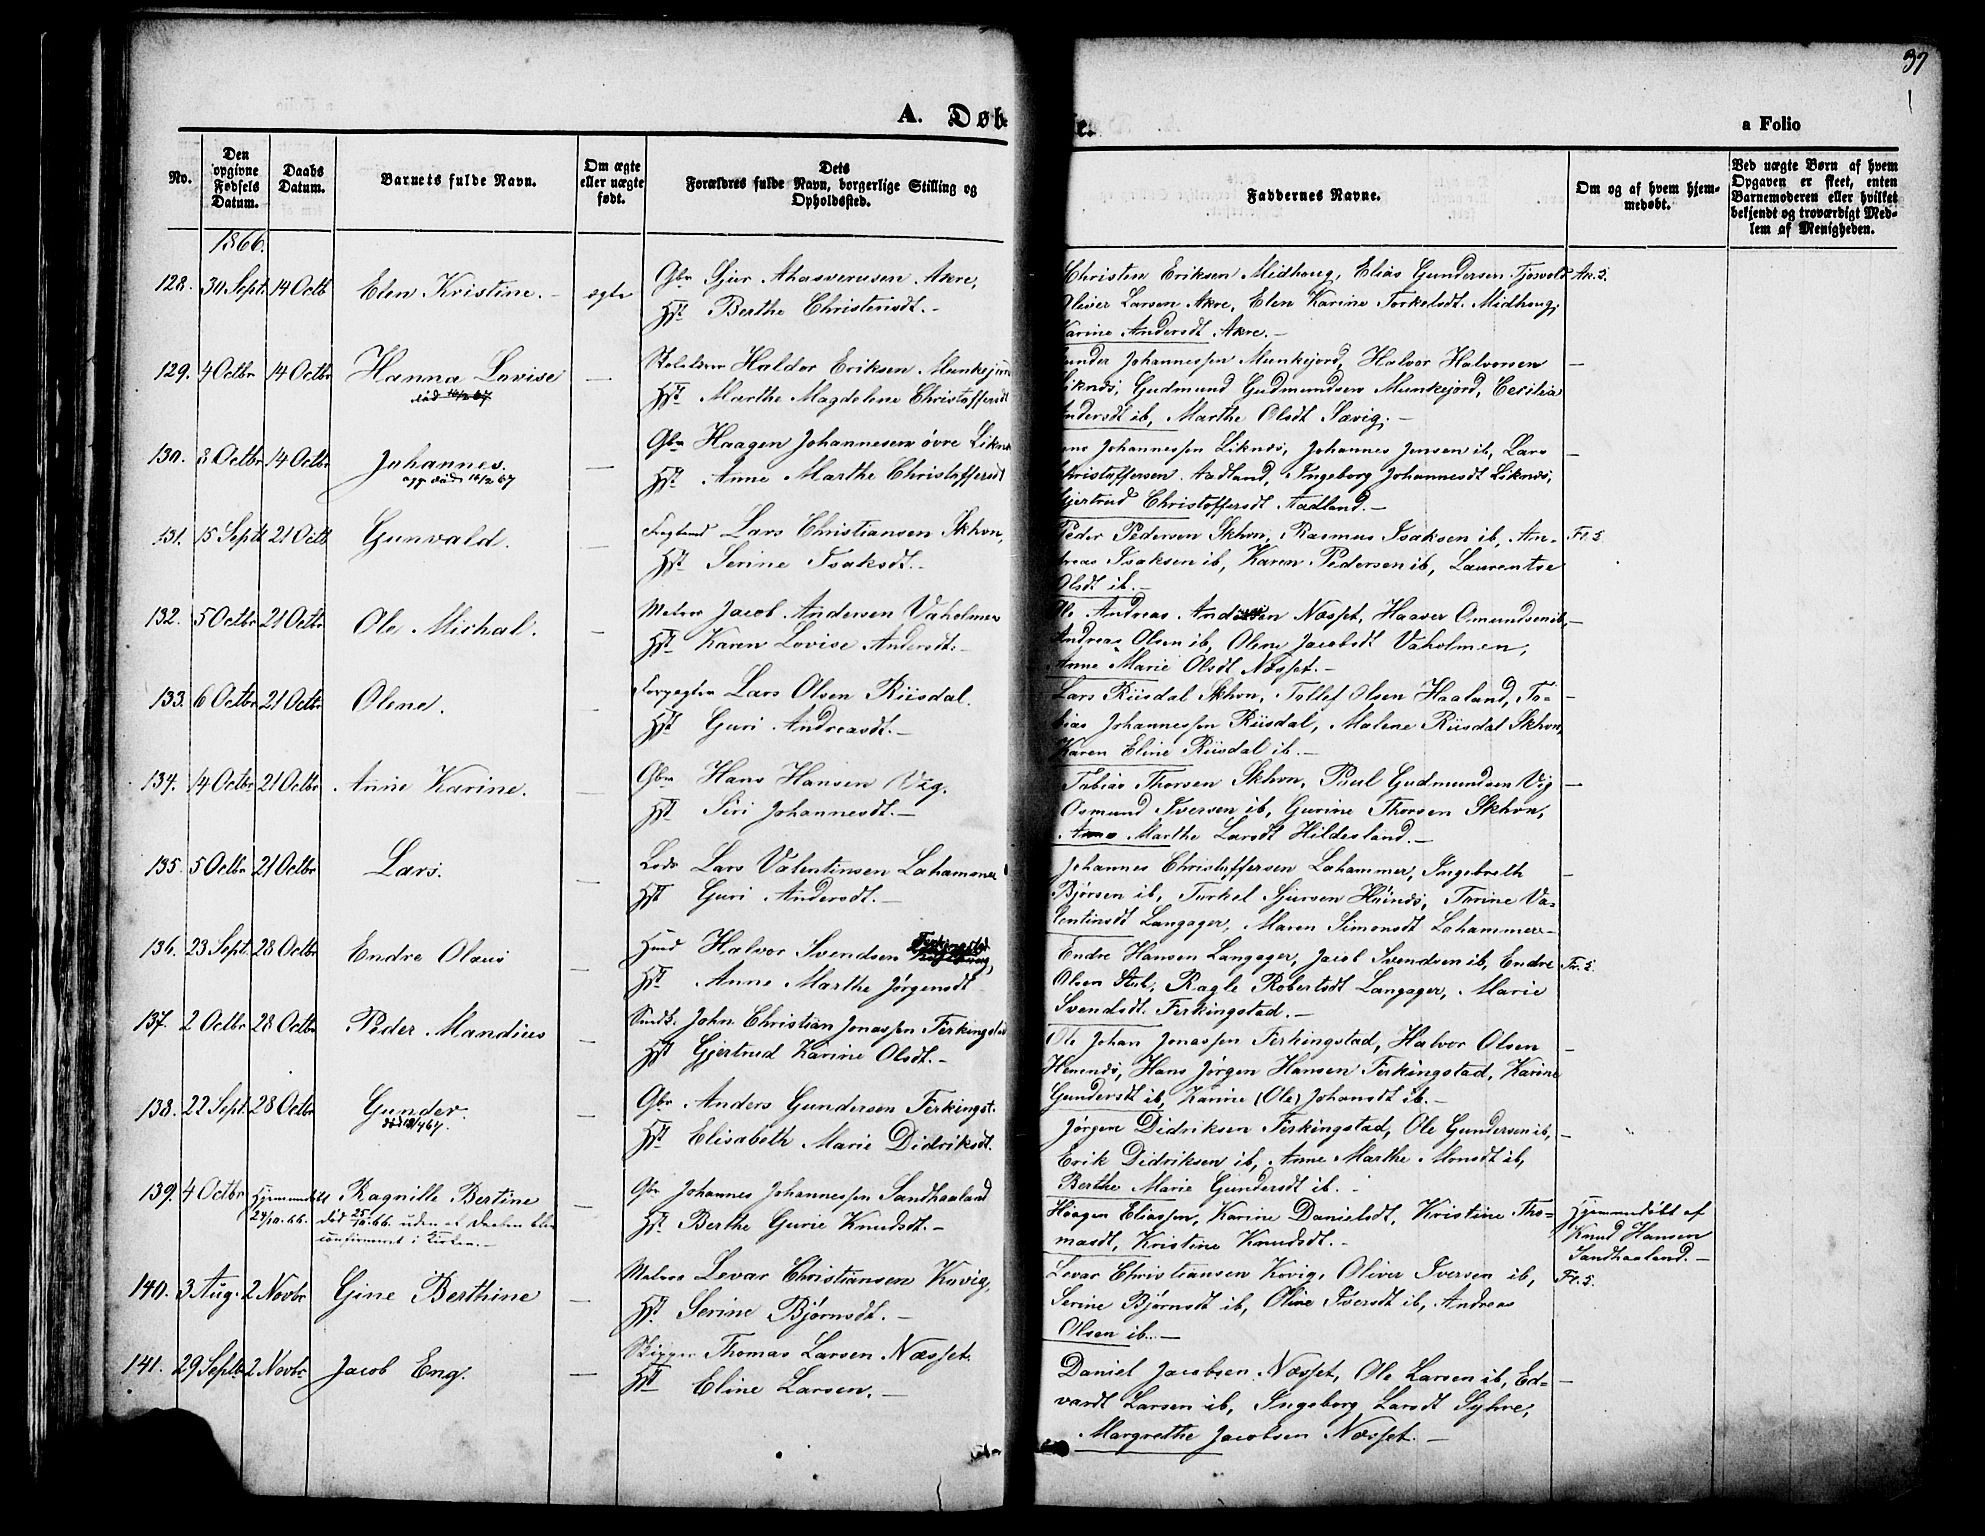 37
A. Døb
te.
a Folio
No.
Den opgivne Fødsels Datum.
Daabs Datum.
Barnets fulde Navn.
Om ægte eller uægte født.
Dets Forældres fulde Navn, borgerlige Stilling og Opholdssted.
Faddernes Navne.
Om og af hvem hjemmedøbt.
Ved uægte Børn af hvem Opgaven er skeet, enten Barnemoderen eller hvilket bekjendt og troværdigt Medlem af Menigheden.
1866.
128. 30 Sept. 14 Octb Elen Kristine. ægte Gbr Sjur Ahasverussen Akre,
Hst. Berthe Christensdt.
Christen Eriksen Midhoug, Elias Gundersen Tjosvold Ak. S.
Oliver Larsen Akre, Elen Karine Torkelsdt. Midhoug,
Karine Andersdt Akre.
129. 4 Octbr 14 Octbr Hanna Lovise — Haldor Eriksen Munkejord
død
Hst. Marthe Magdelene Christoffersdt
Gunder Johannessen Munkejord, Halvor Halvorsen —
Liknæs, Gudmund Gudmundsen Munkejord, Cecilia
Andersdt ib, Marthe Olsdt Sævig.
130. 3 Octbr 14 Octbr Johannes. — Gbr Haagen Johannesen øvre Liknæs
død 16/2 67
Hst. Anne Marthe Christoffersdt
Johannessen Liknæs, Johannes Jensen ib, Lars —
Christoffersen Aadland, Ingeborg Johannesdt Liknæs,
Gjertrud Christoffersdt Aadland.
131. 15 Septb 21 Octb Gunvald. — Lars Christiansen Skhvn,
Hst. Serine Isaksdt.
Peder Pedersen Skhvn, Rasmus Isaksen ib, An- Fr. S.
dreas Isaksen ib, Karen Pedersen ib, Laurentse
Olsdt ib.
132. 5 Octbr 21 Octbr Ole Michal. — Matros Jacob Andersen Vaholmen
Hst. Karen Lovise Andersdt.
Ole Andreas Andersen Næsset, Haaver Omundsen ib, —
Andreas Olsen ib, Olene Jacobsdt Vaholmen,
Anne Marie Olsdt Næsset.
133. 6 Octbr 21 Octbr Olene. — Forpagter Lars Olsen Riisdal.
Hst. Guri Andreasdt.
Lars Riisdal Skhvn, Tollef Olsen Haaland, To- —
bias Johannessen Riisdal, Malene Riisdal Skhvn,
Karen Eline Riisdal ib.
134. 14 Octbr 21 Octbr Anne Karine. — Gbr Hans Hansen Vig.
Hst. Siri Johannesdt.
Tobias Thorsen Skhvn, Poul Gudmundsen Vig —
Osmund Iversen ib, Gurine Thorsen Skhvn,
Anne Marthe Larsdt Hildesland.
135. 5 Octbr 21 Octbr Lars. — Lods Lars Valentinsen Lahammer
Hst. Guri Andersdt.
Johannes Christoffersen Lahammer, Ingebreth —
Bjørsen ib, Torkel Sjursen Høinæs, Torine Va-
lentinsdt Langager, Maren Simonsdt Lahammer
136. 23 Sept. 28 Octbr Endre Olaus — Hmd Halvor Svendsen
Hst. Anne Marthe Jørgensdt
Endre Hansen Langager, Jacob Svendsen ib, Endre Fr. S.
Olsen Stol, Ragle Robertsdt Langager, Marie
Svendsdt. Ferkingstad.
137. 2 Octbr 28 Octbr Peder Mandius — John Christian Jonassen Ferkingstad
Hst Gjertrud Karine Olsdt.
Ole Johan Jonassen Ferkingstad, Halvor Olsen —
Hemnæs, Hans Jørgen Hansen Ferkingstad, Karine
Gundersdt ib, Karine (Ole) Johansdt ib.
138. 22 Sept. 28 Octbr Gunder. — Gbr Anders Gundersen Ferkingst.
Hst Elisabeth Marie Didriksdt.
Jørgen Didriksen Ferkingstad, Ole Gundersen ib, —
Erik Didriksen ib, Anne Marthe Monsdt ib,
Berthe Marie Gundersdt ib.
139. 4 Octbr Hjemmedøbt 24/10.66. Ragnille Bertine Gbr Johannes Johannessen Sandhaaland
død 25/10.66. uden at Daaben blev
confirmeret i Kirken.
Hst. Berthe Gurie Knudsdt.
Haagen Eliassen, Karine Danielsdt, Kristine Tho-
masdt, Kristine Knudsdt.
Hjemmedøbt af
Knud Hansen
Sandhaaland.
140. 3 Aug. 2 Novbr Gine Berthine — Matros Levar Christiansen Kovig,
Hst. Serine Bjørnsdt.
Levar Christiansen Kovig, Oliver Iversen ib, Fr. S.
Serine Bjørnsdt ib, Oline Iversdt ib, Andreas
Olsen ib.
141. 29 Septbr 2 Novbr Jacob Eng. — Skipper Thomas Larsen Næsset.
Hst Eline Larsen.
Daniel Jacobsen Næsset, Ole Larsen ib, Ed- —
vardt Larsen ib, Ingeborg Larsdt Syhre,
Margrethe Jacobsen Næsset.